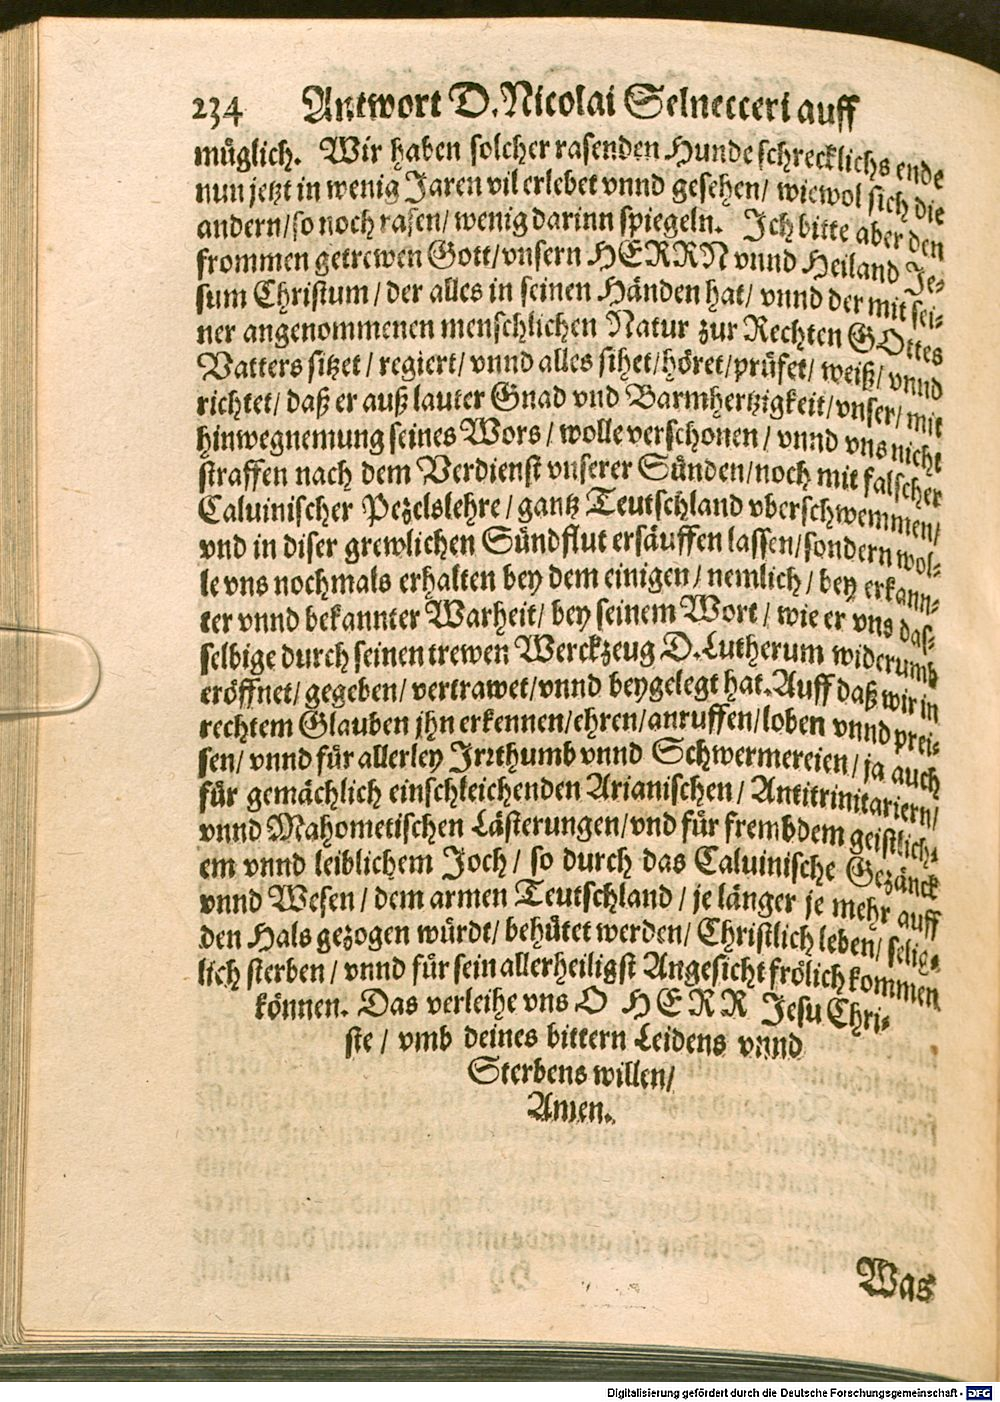 234 Antwort D. Nicolai Selnecceri auff
müglich. Wir haben solcher rasenden Hunde schrecklichs ende
nun jetzt in wenig Jaren vil erlebet vnnd gesehen/ wiewol sich die
andern/ so noch rasen/ wenig darinn spiegeln. Ich bitte aber den
frommen getrewen Gott/ vnsern HERRN vnnd Heiland Je-
sum Christum/ der alles in seinen Händen hat/ vnnd der mit sei-
ner angenommenen menschlichen Natur zur Rechten GOttes
Vatters sitzet/ regiert/ vnnd alles sihet/ höret/ prüfet/ weiß/ vnnd
richtet/ daß er auß lauter Gnad vnd Barmhertzigkeit/ vnser/ mit
hinwegnemung seines Wors/ wolle verschonen/ vnnd vns nicht
straffen nach dem Verdienst vnserer Sünden/ noch mit falscher
Caluinischer Pezelslehre/ gantz Teutschland vberschwemmen/
vnd in diser grewlichen Sündflut ersäuffen lassen/ sondern wol-
le vns nochmals erhalten bey dem einigen/ nemlich/ bey erkann-
ter vnnd bekannter Warheit/ bey seinem Wort/ wie er vns das-
selbige durch seinen trewen Werckzeug D. Lutherum widerumb
eröffnet/ gegeben/ vertrawet/ vnnd beygelegt hat. Auff daß wir in
rechtem Glauben jhn erkennen/ ehren/ anruffen/ loben vnnd prei-
sen/ vnnd für allerley Irrthumb vnnd Schwermereien/ ja auch
für gemächlich einschleichenden Arianischen/ Antitrinitariern/
vnnd Mahometischen Lästerungen/ vnd für frembdem geistlich-
em vnnd leiblichem Joch/ so durch das Caluinische Gezänck
vnnd Wesen/ dem armen Teutschland/ je länger je mehr auff
den Hals gezogen würdt/ behütet werden/ Christlich leben/ selig-
lich sterben/ vnnd für sein allerheiligst Angesicht frölich kommen
können. Das verleihe vns O HERR Jesu Chri-
ste/ vmb deines bittern Leidens vnnd
Sterbens willen/
Amen.
Was
Digitalisierung gefördert durch die Deutsche Forschungsgemeinschaft - DFG